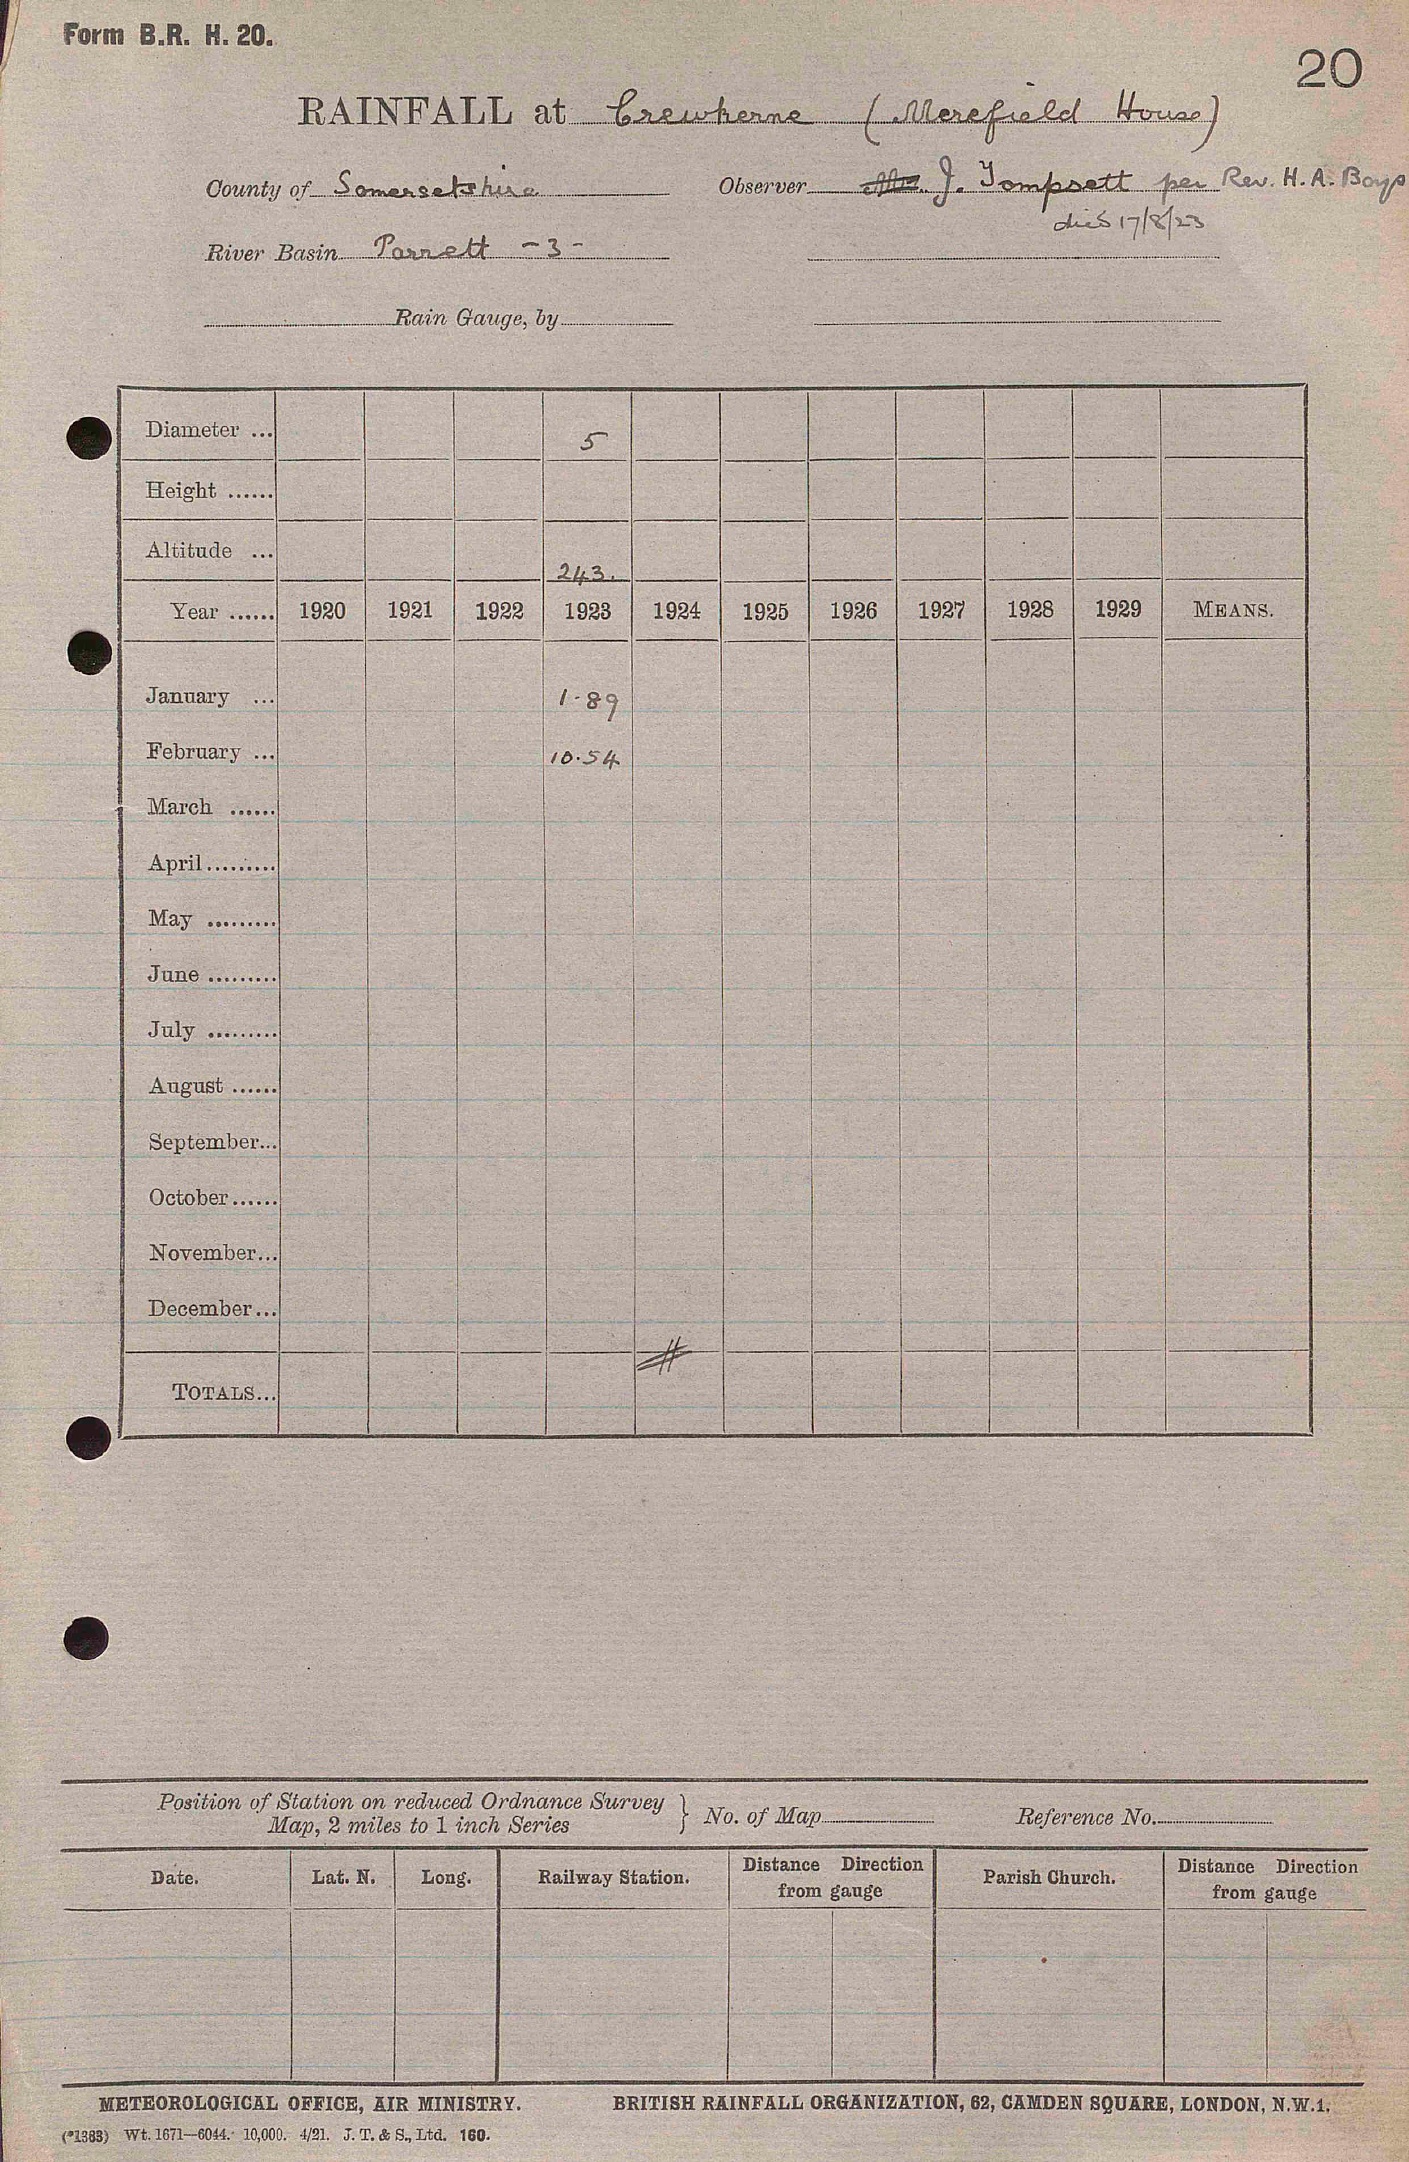 Form B.R. H. 20.
20
RAINFALL at Crewkerne (Merefield House)
County of Somersetshire Observer J. Tompsett per Rev. H. A. Boys
died 17/8/23
River Basin Parrett - 3 -
Rain Gauge, by
Diameter ... 5
Height ......
Altitude ... 243.
Year ...... 1920 1921 1922 1923 1924 1925 1926 1927 1928 1929 MEANS.
January ... 1.89
February ... 10.54
March ......
April.........
May .........
June .........
July .........
August ......
September...
October......
November...
December...
TOTALS...
Position of Station on reduced Ordnance Survey
Map, 2 miles to 1 inch Series } No. of Map Reference No.
Date. Lat. N. Long. Railway Station. Distance Direction from gauge Parish Church. Distance Direction from gauge
METEOROLOGICAL OFFICE, AIR MINISTRY. BRITISH RAINFALL ORGANIZATION, 62, CAMDEN SQUARE, LONDON, N.W.1.
(*1383) Wt. 1671—6044. 10,000. 4/21. J. T. & S., Ltd. 160.